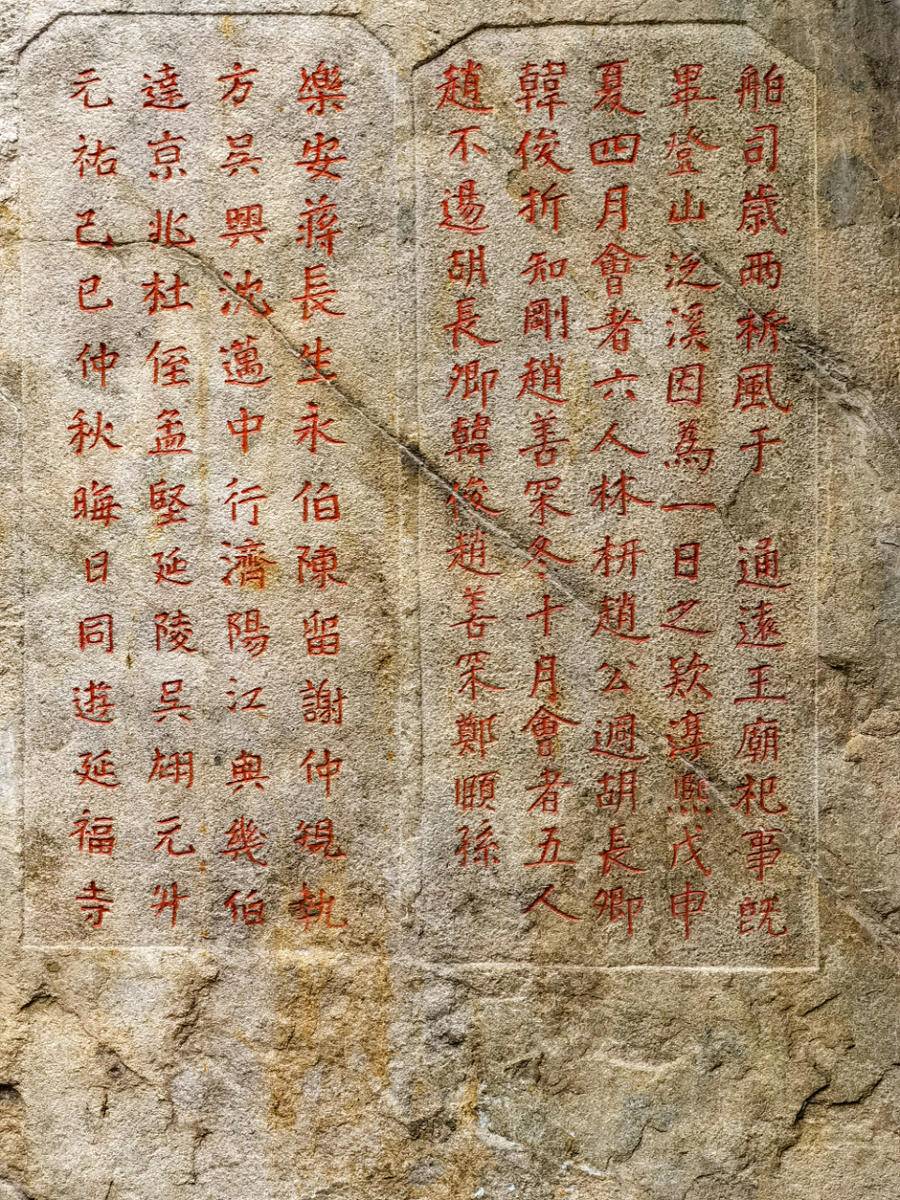 舶司歳兩祈風于 通遠王廟祀事既
畢登山泛溪因為一日之款淳熈戊申
夏四月會者六人林枅趙公迥胡長卿
韓俊折知剛趙善罙冬十月會者五人
趙不逷胡長卿韓俊趙善罙鄭頤孫
樂安蔣長生永伯陳留謝仲規執
方吳興沈邁中行濟陽江與幾伯
達京兆杜侄孟堅延陵吳栩元升
元祐己巳仲秋晦日同遊延福寺